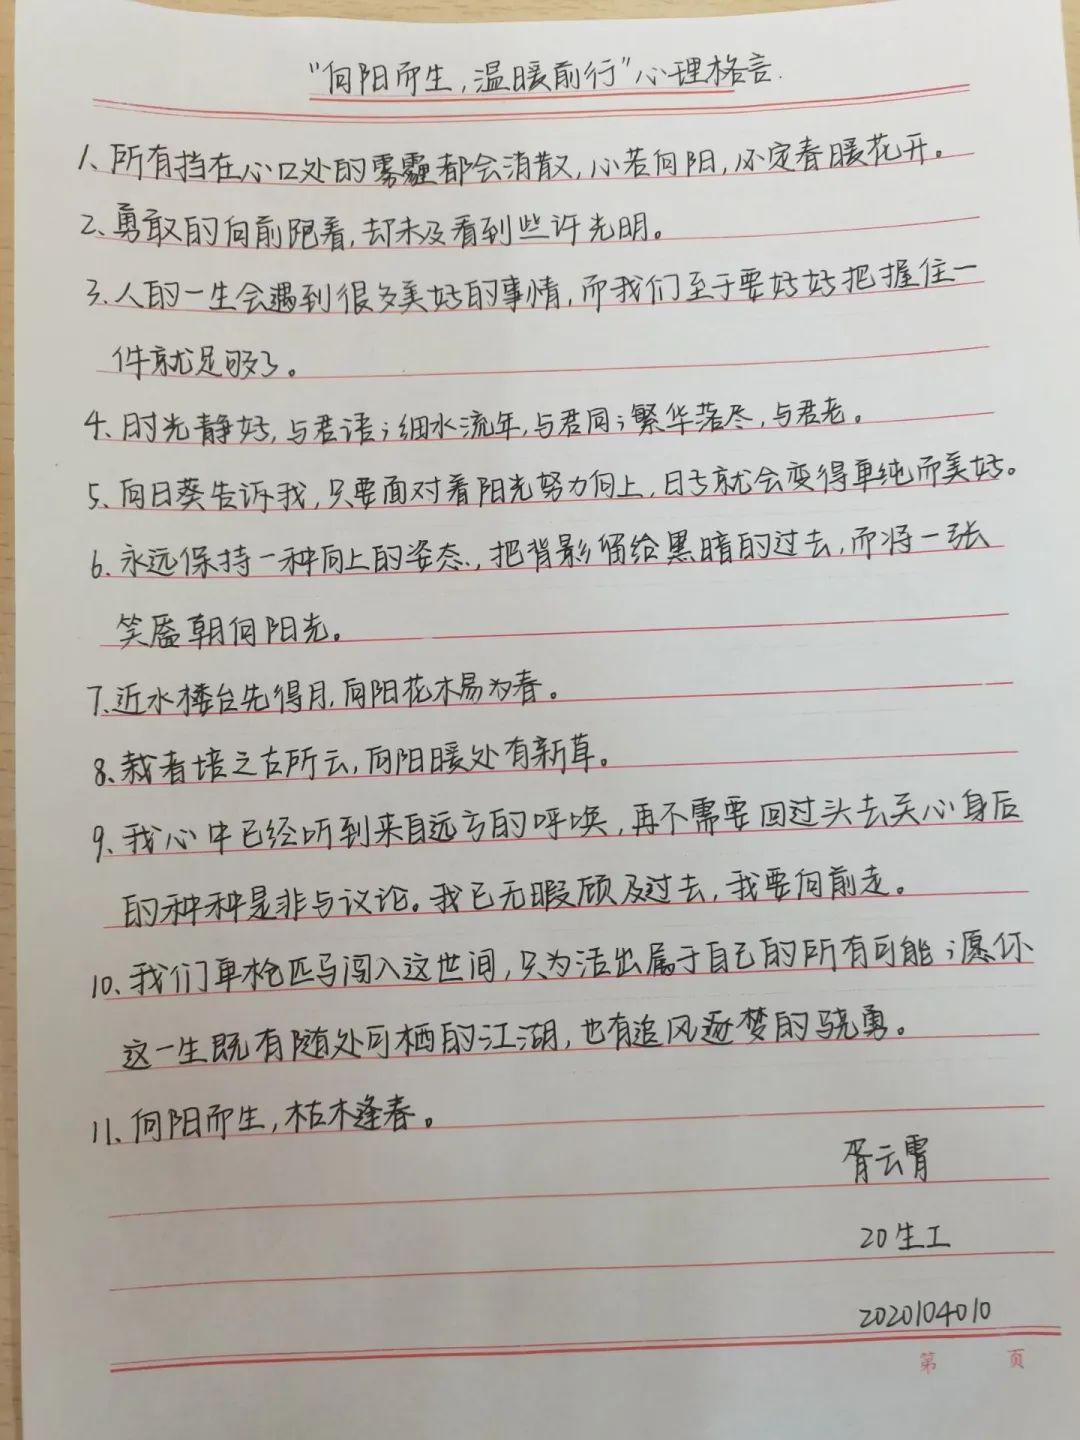 “向阳而生，温暖前行”心理格言.
1、所有挡在心口处的雾霾都会消散，心若向阳，必定春暖花开。
2、勇敢的向前跑着，却未及看到些许光明。
3、人的一生会遇到很多美好的事情，而我们至于要好好把握住一
件就足够了。
4、时光静好，与君语；细水流年，与君同；繁华落尽，与君老。
5、向日葵告诉我，只要面对着阳光努力向上，日子就会变得单纯而美好。
6、永远保持一种向上的姿态，把背影留给黑暗的过去，而将一张
笑靥朝向阳光。
7、近水楼台先得月，向阳花木易为春。
8、栽者培之古所云，向阳暖处有新草。
9、我心中已经听到来自远方的呼唤，再不需要回过头去关心身后
的种种是非与议论。我已无暇顾及过去，我要向前走。
10、我们单枪匹马闯入这世间，只为活出属于自己的所有可能；愿你
这一生既有随处可栖的江湖，也有追风逐梦的骁勇。
11、向阳而生，枯木逢春。
胥云霄
20生工
2020104010
第 页